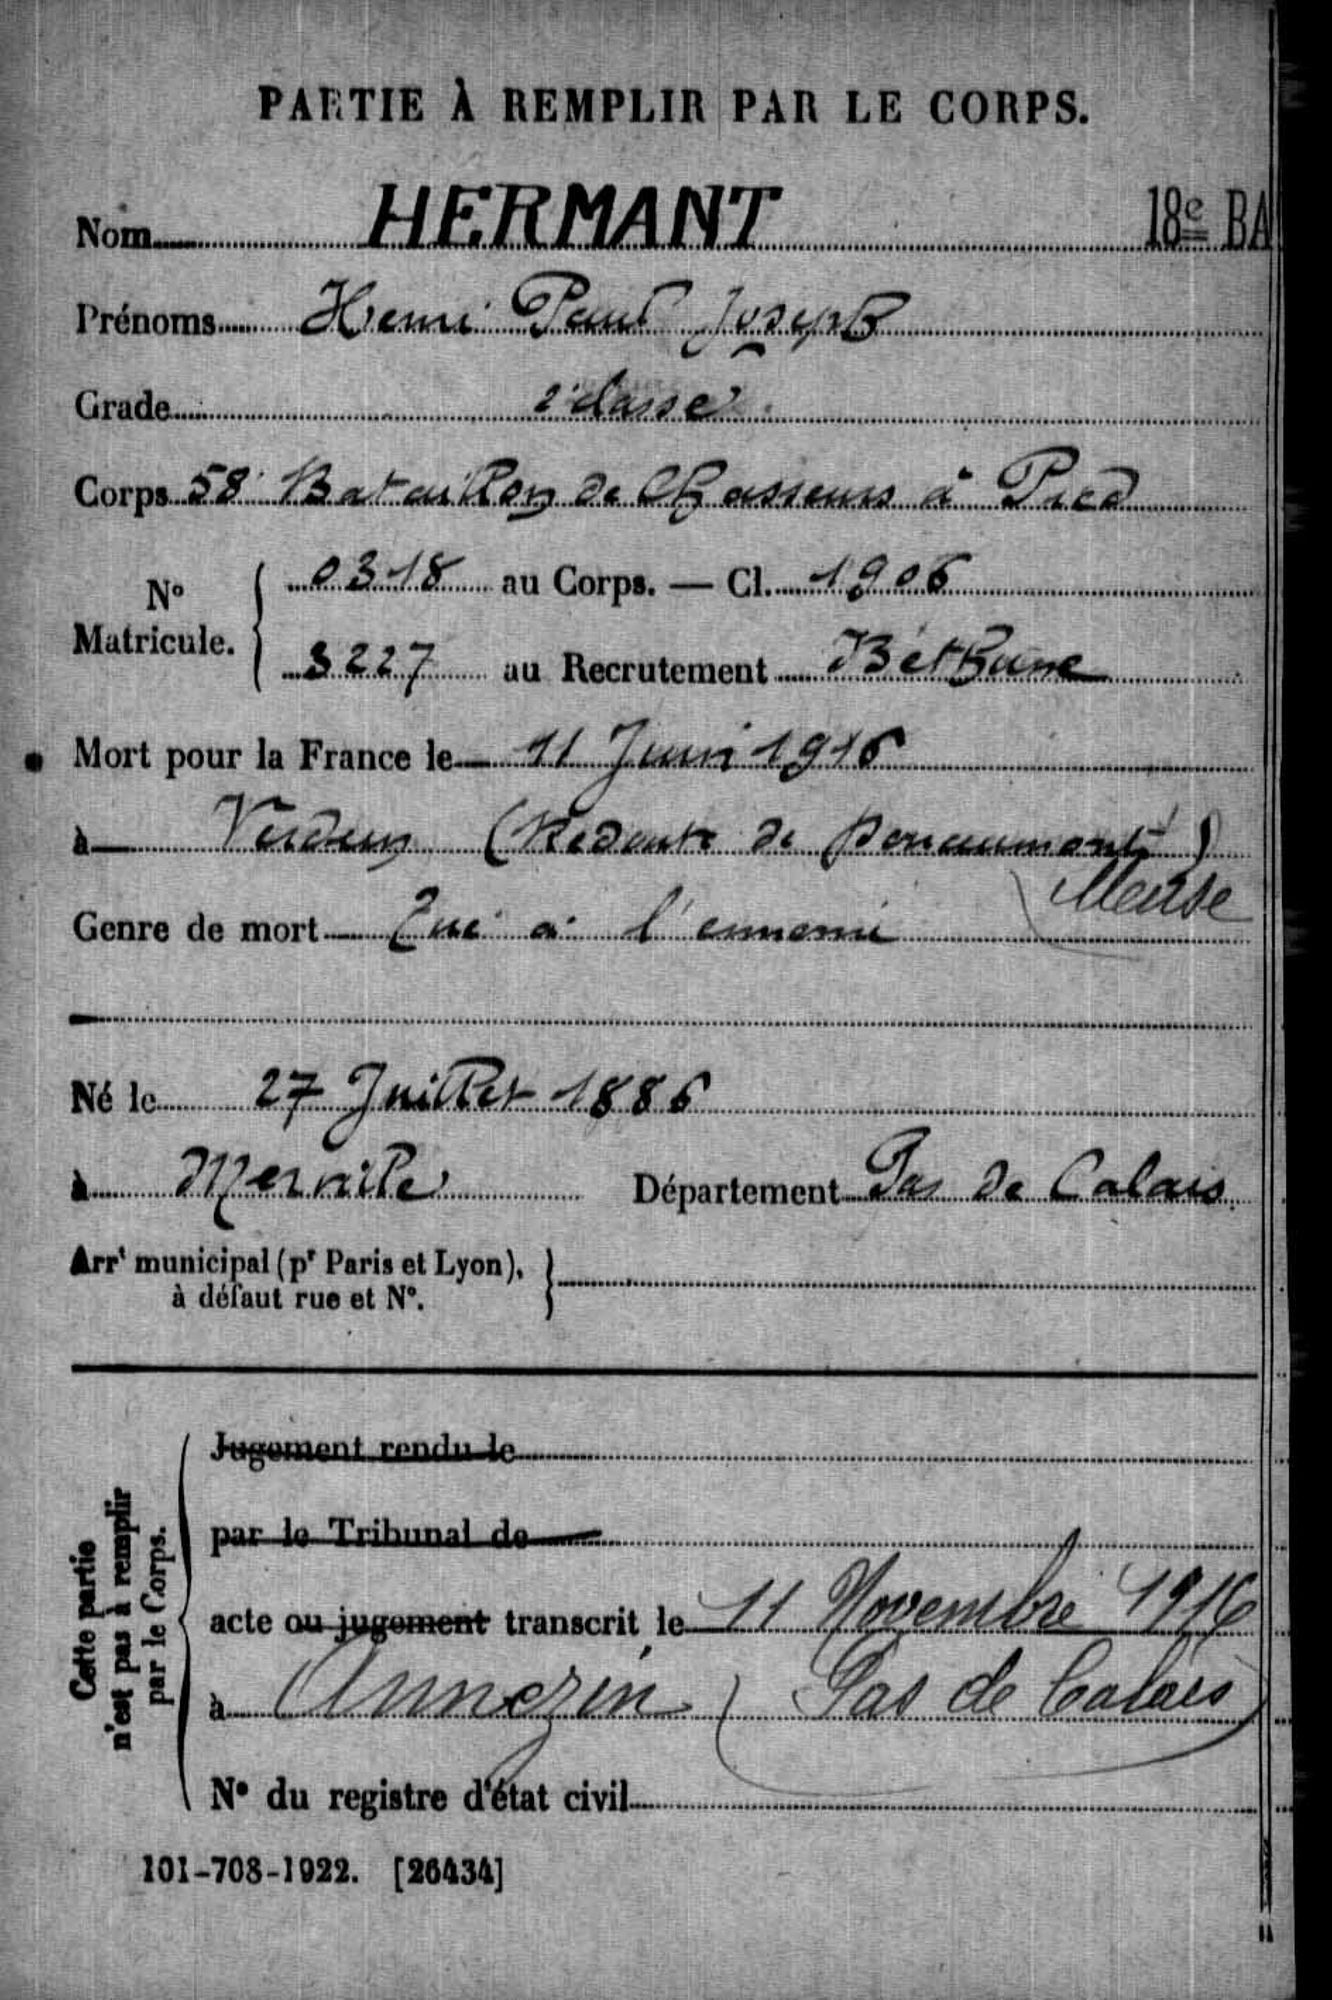 PARTIE À REMPLIR PAR LE CORPS.
Nom HERMANT 18e BA
Prénoms Henri Paul Joseph
Grade 2e classe
Corps 58e Bataillon de Chasseurs à Pied
N° Matricule. { 0318 au Corps. — Cl. 1906
3227 au Recrutement Béthune
Mort pour la France le 11 Juin 1916
à Verdun (Redoute de Douaumont)
Meuse
Genre de mort Tué à l'ennemi
Né le 27 Juillet 1886
à Merville Département Pas de Calais
Arrt municipal (pr Paris et Lyon), }
à défaut rue et N°.
Cette partie
n'est pas à remplir
par le Corps.
Jugement rendu le
par le Tribunal de
acte ou jugement transcrit le 11 Novembre 1916
à Annezin (Pas de Calais)
N° du registre d'état civil
101-708-1922. [26434]